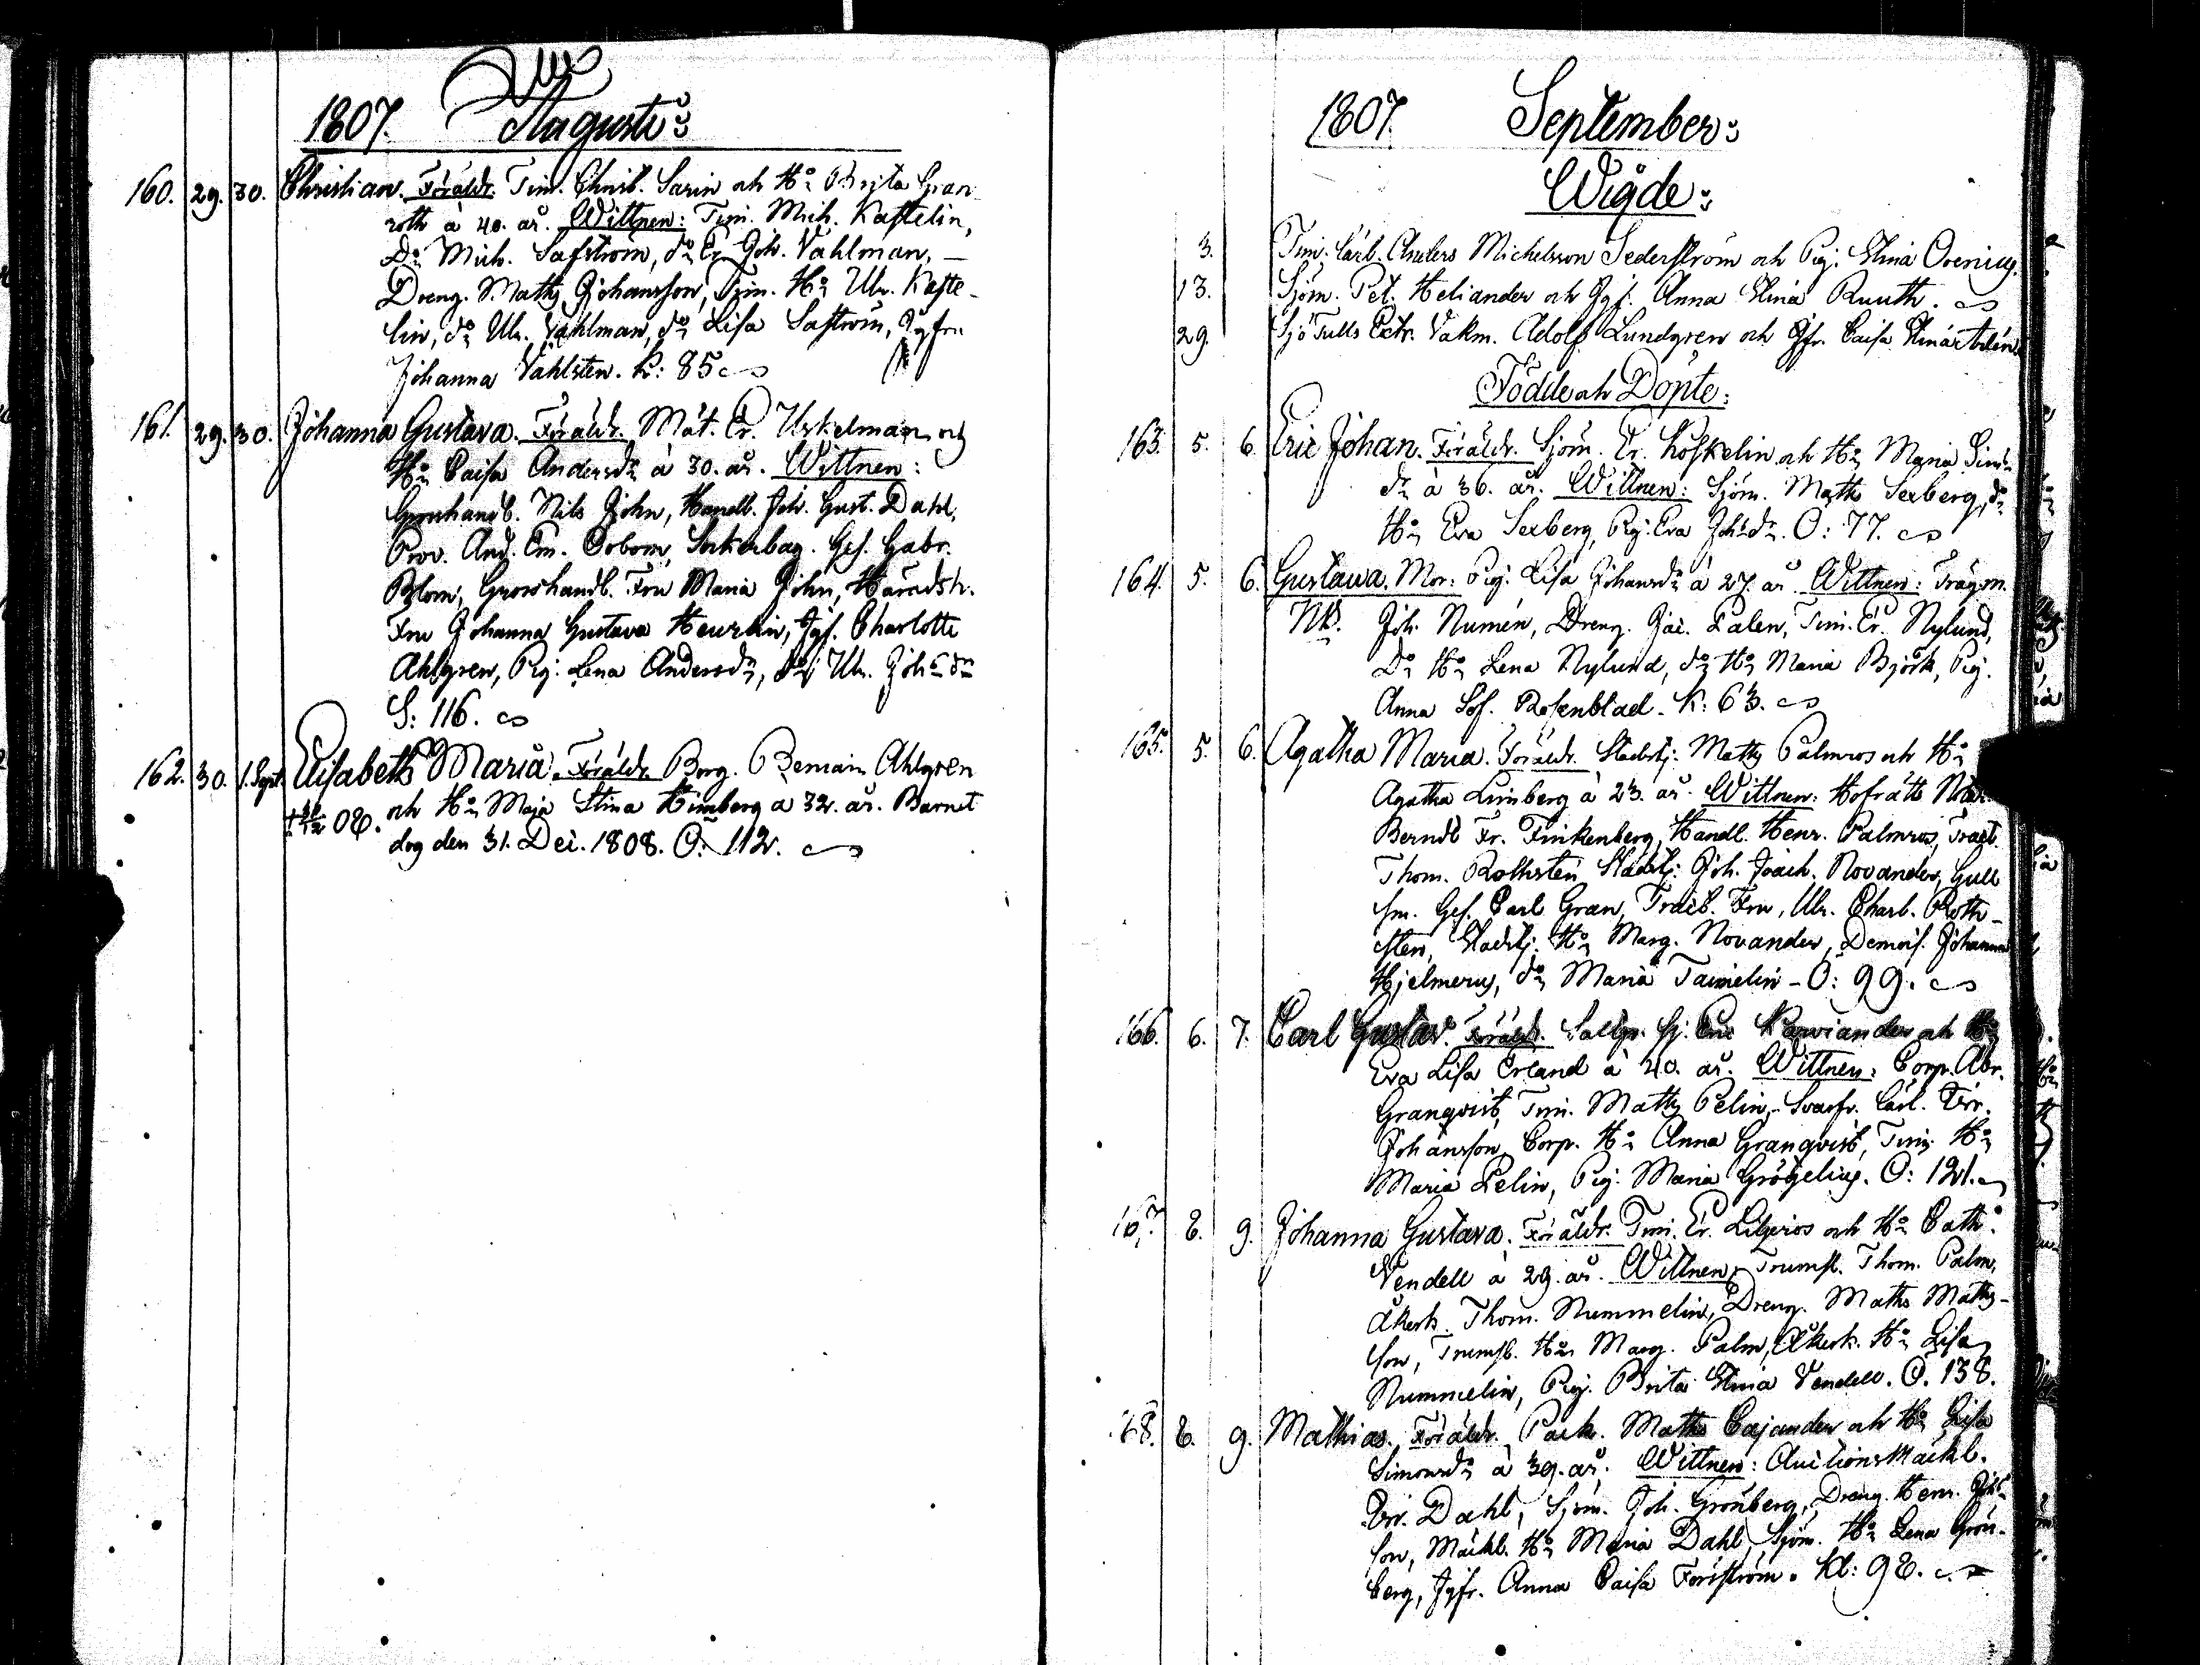 1807. Augusti:
160. 29. 30. Christian. Föräldr. Tim. Christ. Sarin och H:u Brita Gran-
roth à 40. år. Wittnen: Tim. Mich. Kastelin,
D:o Mich. Safström, d:o Er. Joh. Vahlman, —
Dreng. Maths Johansson, Tim. H:u Ulr. Kaste-
lin, d:o Ulr. Vahlman, d:o Lisa Safström, Jgfru
Johanna Vahlsten. K: 85
161. 29. 30. Johanna Gustava. Föräldr. Mät. Er. Uskelman och
H:u Caisa Andersd:r à 30. år. Wittnen:
Grosshandl. Nils John, Handl. Joh. Gust. Dahl,
Prov. And. Em. Sockerbag. Ges. Gabr.
Blom, Grosshandl. Fru Maria John, Häradsh.
Fru Johanna Gustava Heurlin, Jgf. Charlotte
Ahlgren, Pig: Lena Andersd:r, d:o Ulr. Joh:sd:r
S: 116.
162. 30. 1. Sept. Elisabeth Maria. Föräldr. Borg. Bemain Ahlgren
† 31/12 08. och H:u Maja Stina Himberg a 32. år. Barnet
dog den 31. Dec. 1808. O: 112.
1807. September:
Wigde:
3. Tim. Carl. Anders Michelsson Sederström och Pig: Stina Ovenius.
13. Sjöm. Pet. Heliander och Jgf. Anna Stina Ruuth.
29. Sjö Tulls Vakm. Adolf Lundgren och Jfr. Caisa Stina
Födde och Döpte:
163. 5. 6. Eric Johan. Föräldr. Sjöm. Er. Koskelin och H:u Maria Sim:s
d:r à 36. år. Wittnen: Sjöm. Maths Sexberg, d:o
H:u Eva Sexberg, Pig: Eva Joh:sd:r. O: 77.
164. 5. 6. Gustawa. Mor: Pig: Lisa Johansd:r à 27. år Wittnen: Trägm.
NB. Joh. Numén, Dreng. Jac. Palen, Tim. Er. Nylund,
D:o H:u Lena Nylund, d:o H:u Maria Björk, Pig.
Anna Sof. Rosenblad. K: 63.
165. 5. 6. Agatha Maria. Föräldr. Stadstj: Maths Palmros och H:u
Agatha Limberg à 23. år. Wittnen: Hofrätts
Berndt Fr. Finkenberg, Handl. Henr. Palmros, Tract.
Thom. Rothsten Stadstj: Joh. Joach. Novander, Gull
sm. Ges. Carl Gran, Tract. Fru, Ulr. Charl. Roth-
sten, Stadstj: H:u Marg. Novander, Demois. Johanna
Hjelmerus, d:o Maria Tamelin - O: 99.
166. 6. 7. Carl Gustav. Föräldr. Saltp. Sj: Eric Karviander och H:u
Eva Lisa Erland à 40. år. Wittnen: Corp. Abr.
Granqvist, Tim. Maths Pelin, Svarfv. Lärl.
Johansson, Corp. H:u Anna Granqvist, Tim. H:u
Maria Pelin, Pig: Maria Grögelius. O: 121.
167. 8. 9. Johanna Gustava. Föräldr. Tim. Er. Ligeros och H:u Cath:
Vendell à 29. år. Wittnen: Trumsl. Thom. Palm,
Åkerk. Thom. Nummelin, Dreng. Maths Maths-
son, Trumsl. H:u Marg. Palm, Åkerk. H:u Lisa
Nummelin, Pig. Brita Stina Vendell. O. 138.
168. 8. 9. Mathias. Föräldr. Pack. Maths Cajander och H:u Lisa
Simonsd:r à 39. år. Wittnen: Auctions Mäckl.
Er. Dahl, Sjöm. Joh. Grönberg, Dreng. Henr. Joh:s
son, Mäckl. H:u Maria Dahl, Sjöm. H:u Lena Grön-
berg, Jgfr. Anna Caisa Forsström. Kl: 98.